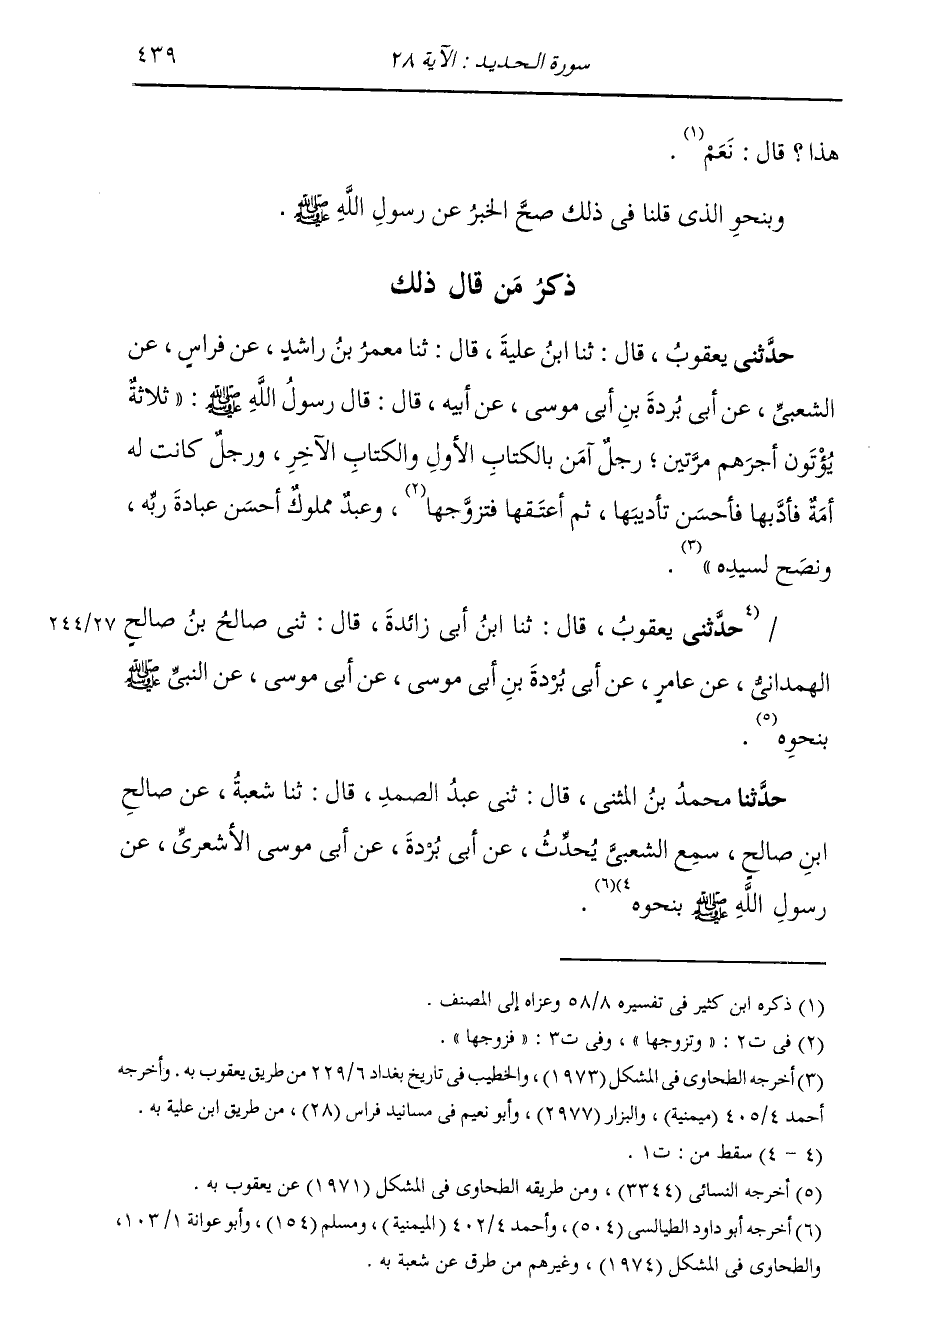 سورة الحديد : الآية ٢٨ ٤٣٩
هذا ؟ قال : نَعَمْ(١) .
وبنحوِ الذى قلنا فى ذلك صحَّ الخبرُ عن رسولِ اللَّهِ ﷺ .
ذكرُ مَن قال ذلك
حدَّثنى يعقوبُ ، قال : ثنا ابنُ عليةَ ، قال : ثنا معمرُ بنُ راشدٍ ، عن فراسٍ ، عن
الشعبىِّ ، عن أبى بُردةَ بنِ أبى موسى ، عن أبيه ، قال : قال رسولُ اللَّهِ ﷺ : « ثلاثةٌ
يُؤْتَون أجرَهم مرَّتين ؛ رجلٌ آمَن بالكتابِ الأولِ والكتابِ الآخِرِ ، ورجلٌ كانت له
أمَةٌ فأدَّبها فأحسَن تأديبَها ، ثم أعتَقها فتزوَّجها(٢) ، وعبدٌ مملوكٌ أحسَن عبادةَ ربِّه ،
ونصَح لسيدِه »(٣) .
/ (٤حدَّثنى يعقوبُ ، قال : ثنا ابنُ أبى زائدةَ ، قال : ثنى صالحُ بنُ صالحٍ ٢٤٤/٢٧
الهمدانىُّ ، عن عامرٍ ، عن أبى بُرْدةَ بنِ أبى موسى ، عن أبى موسى ، عن النبىِّ ﷺ
بنحوِه(٥) .
حدَّثنا محمدُ بنُ المثنى ، قال : ثنى عبدُ الصمدِ ، قال : ثنا شعبةُ ، عن صالحِ
ابنِ صالحٍ ، سمِع الشعبىَّ يُحدِّثُ ، عن أبى بُرْدةَ ، عن أبى موسى الأشعرىِّ ، عن
رسولِ اللَّهِ ﷺ بنحوه٤)(٦) .
(١) ذكره ابن كثير فى تفسيره ٥٨/٨ وعزاه إلى المصنف .
(٢) فى ت٢ : « وتزوجها » ، وفى ت٣ : « فزوجها » .
(٣) أخرجه الطحاوى فى المشكل (١٩٧٣) ، والخطيب فى تاريخ بغداد ٢٢٩/٦ من طريق يعقوب به . وأخرجه
أحمد ٤٠٥/٤ (ميمنية) ، والبزار (٢٩٧٧) ، وأبو نعيم فى مسانيد فراس (٢٨) ، من طريق ابن علية به .
(٤ - ٤) سقط من : ت١ .
(٥) أخرجه النسائى (٣٣٤٤) ، ومن طريقه الطحاوى فى المشكل (١٩٧١) عن يعقوب به .
(٦) أخرجه أبو داود الطيالسى (٥٠٤) ، وأحمد ٤٠٢/٤ (الميمنية) ، ومسلم (١٥٤) ، وأبو عوانة ١٠٣/١ ،
والطحاوى فى المشكل (١٩٧٤) ، وغيرهم من طرق عن شعبة به .